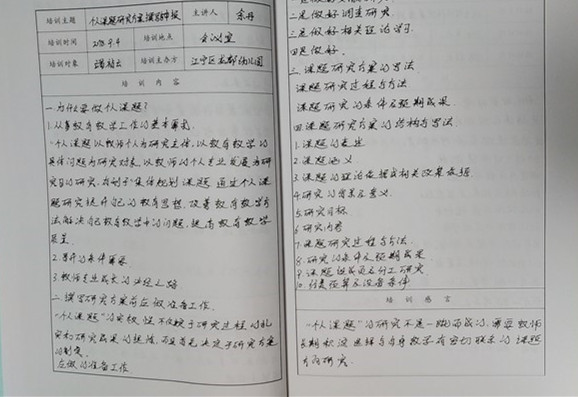 培训主题 个人课题研究方案撰写与申报 主讲人
培训时间 9.4 培训地点 会议室
培训对象 培训主办方 江宁区 幼儿园
培训内容
一.为什么要做个人课题?
1.从事教育教学工作的基本要求
"个人课题"以教师个人为研究主体,以教育教学的
具体问题为研究对象,以教师的个人专业发展为研
究目的研究,有别于"集体规划课题"通过个人课
题研究提升自己的教育思想,改善教育教学方
法,解决自己教育教学中的问题,提高教育教学
质量
2.晋升的条件要求
3.教师专业成长的必经之路
二.撰写研究方案前应做准备工作
"个人课题"的实效性不仅决于研究过程的扎
实和研究成果的提炼,而且首先决定于研究方案
的制定
应做的准备工作
二是做好调查研究
三是做好相关理论学习
四是做好
三.课题研究方案的写法
课题研究过程与方法
课题研究的条件及预期成果
四.课题研究方案的结构与写法
1.课题的表述
2.课题涵义
3.课题的理论依据或相关政策依据
4.研究的背景及意义
5.研究目标
6.研究内容
7.课题研究过程与方法
8.研究的条件及预期成果
9.课题组成员及分工研究
10.经费预算及设备条件
培训感言
"个人课题"的研究不是一蹴而成的,需要教师
长期积淀选择与自身教学有密切联系的课题
为研究.